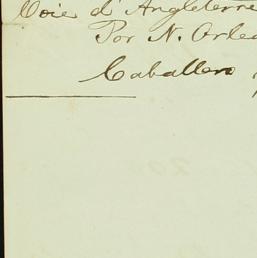 Voie d'Angleterre
Por N. Orlea
Caballero